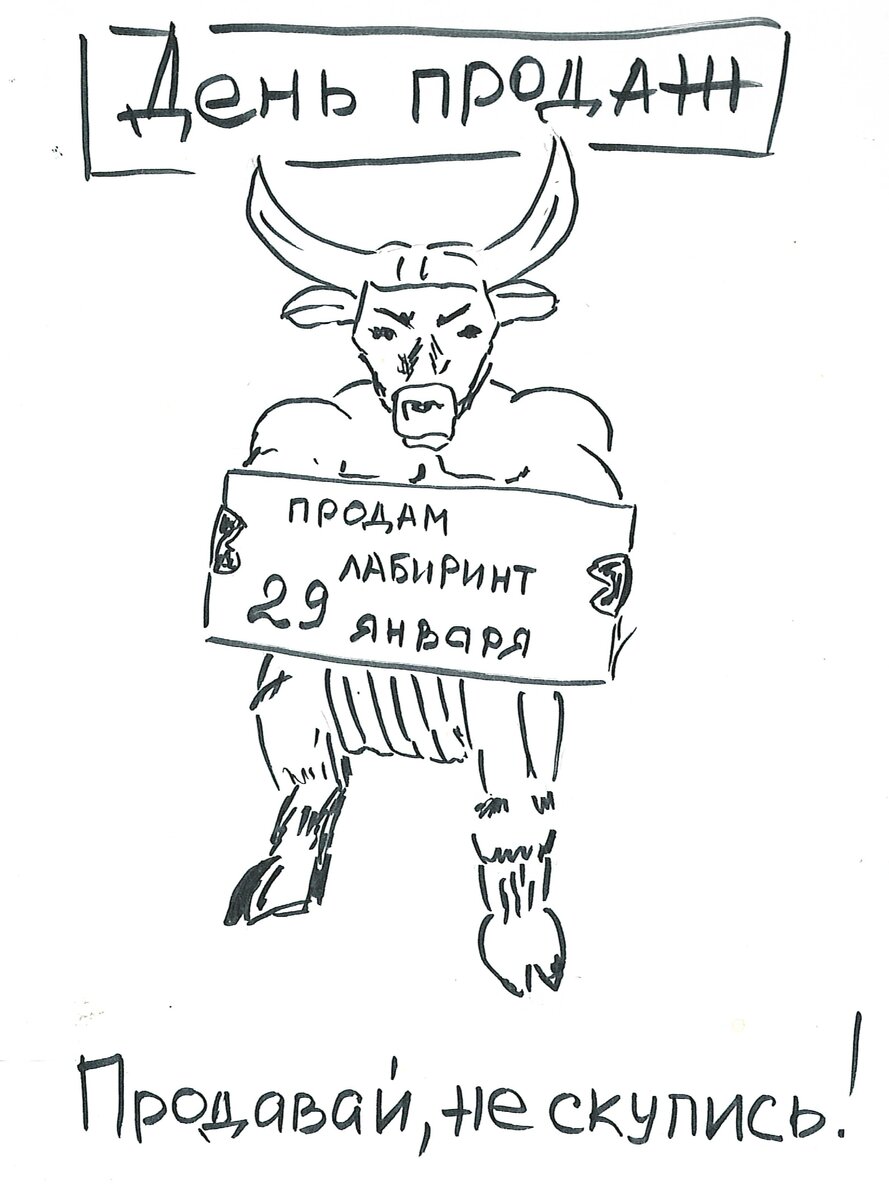 День продАЖ
ПРОДАМ
ЛАБИРИНТ
29 ЯНВАРЯ
Продавай, не скупись!